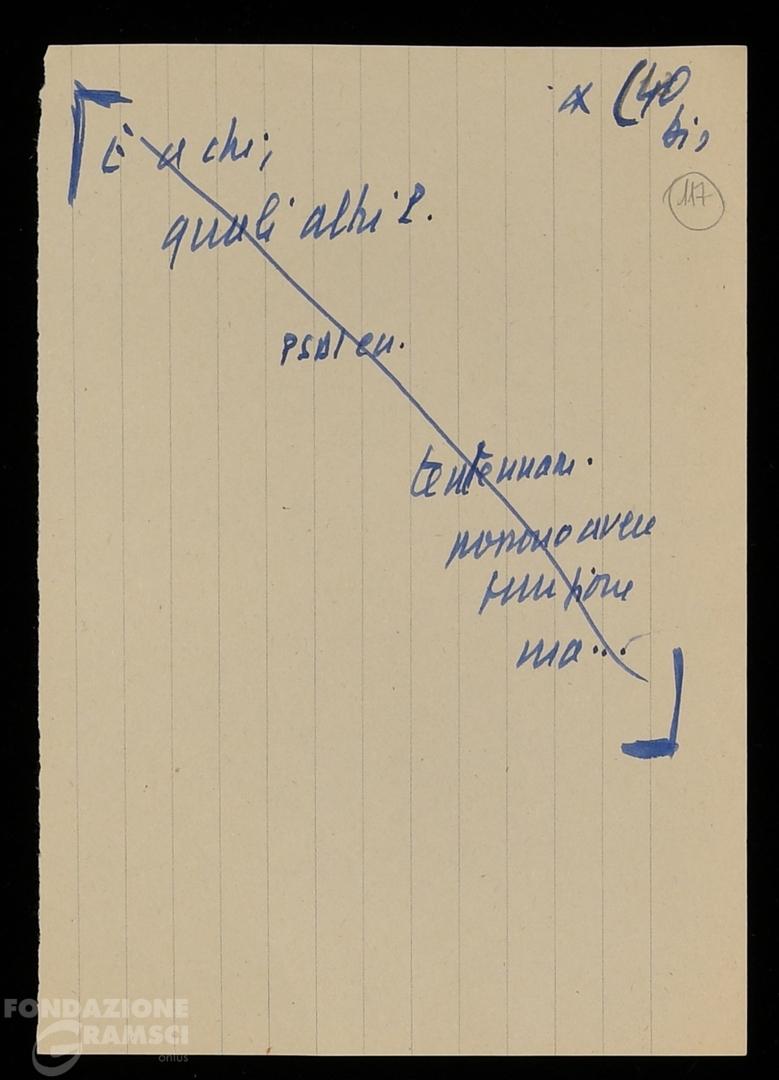 x (40
bis
117
È a chi,
quali altri?
PSDI ecc.
tentennam.
possono avere
funzione
ma...
FONDAZIONE
GRAMSCI
onlus